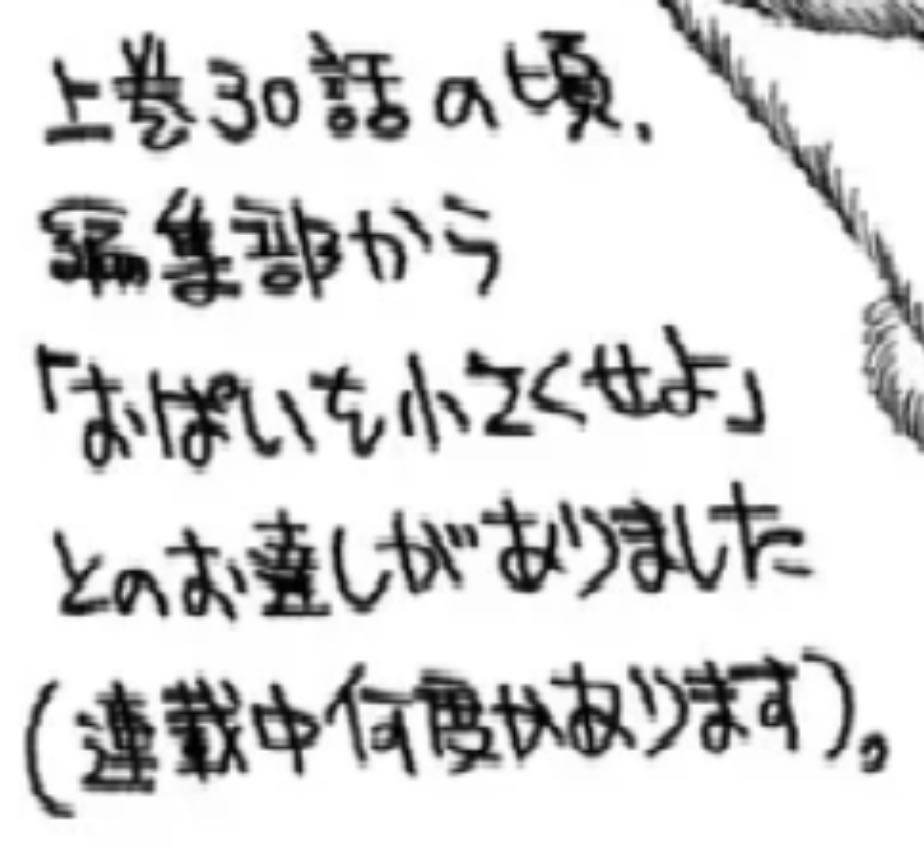 上巻30話の頃、
編集部から
「おぱいを小さくせよ」
とのお達しがありました
(連載中何度かあります)。